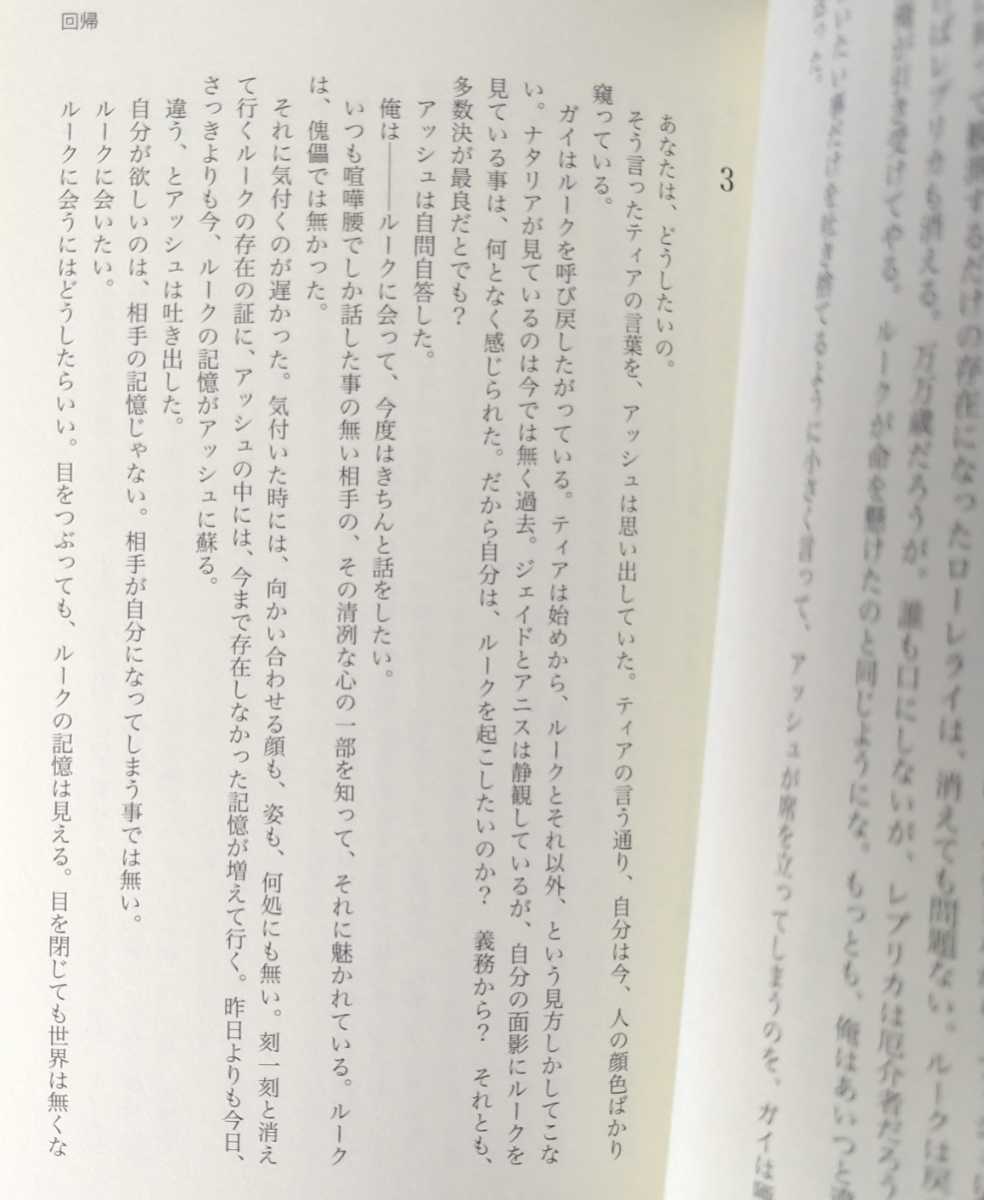 するだけの存在になったローレライは、消えても問題ない。ルークは戻
ばレプリカも消える。万万歳だろうが。誰も口にしないが、レプリカは厄介者だろう
が引き受けてやる。　ルークが命を懸けたのと同じようにな。もっとも、俺はあいつと
いたい事だけを吐き捨てるように小さく言って、アッシュが席を立ってしまうのを、ガイは
った。
回帰
3
あなたは、どうしたいの。
そう言ったティアの言葉を、アッシュは思い出していた。ティアの言う通り、自分は今、人の顔色ばかり
窺っている。
ガイはルークを呼び戻したがっている。ティアは始めから、ルークとそれ以外、という見方しかしてこな
い。ナタリアが見ているのは今では無く過去。ジェイドとアニスは静観しているが、自分の面影にルークを
見ている事は、何となく感じられた。だから自分は、ルークを起こしたいのか？　義務から？　それとも、
多数決が最良だとでも？
アッシュは自問自答した。
俺は――ルークに会って、今度はきちんと話をしたい。
いつも喧嘩腰でしか話した事の無い相手の、その清冽な心の一部を知って、それに魅かれている。ルーク
は、傀儡では無かった。
それに気付くのが遅かった。気付いた時には、向かい合わせる顔も、姿も、何処にも無い。刻一刻と消え
て行くルークの存在の証に、アッシュの中には、今まで存在しなかった記憶が増えて行く。昨日よりも今日、
さっきよりも今、ルークの記憶がアッシュに蘇る。
違う、とアッシュは吐き出した。
自分が欲しいのは、相手の記憶じゃない。相手が自分になってしまう事では無い。
ルークに会いたい。
ルークに会うにはどうしたらいい。目をつぶっても、ルークの記憶は見える。目を閉じても世界は無くな